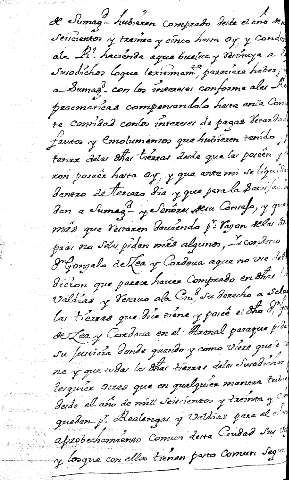 de Sumagd. hubieren comprado desde el año de
seiscientos y treinta y cinco hasta oy y conde
ala Rl. hacienda aque buelva y restituya a
susodichos loque lexitimamte. pareciere haber
a Sumagd. con los intereses conforme alas Rs.
pracmaticas compensandola hasta enla Can
te cantidad conlos intereses de pagas
frutos y emolumentos que hubieren tenido
tener delas dhas. tierras desde que las poseen y
ron poseer hasta oy, y que ante mi se liquide
dentro de tercero dia y que para lo
dan a Sumagd. y Señores desu Consejo, y que
mas que restaren debiendo pr. razon de las
no seles pidan mas algunos,
Dn. Gonzalo de Zea y Cordova aque no use de
dicion que parece haver comprado en dhas.
Valdias y reservo ala Ciud. su derecho a salvo
las tierras que dio tiene y poseé el dho. Dn. G
de Zea y Cordova en el Arenal paraque pida
su justicia donde quando y como viere que le
ne y que todas las dhas. tierras delos susodichos
lesquier otras que en qualquier manera
desde el año de mill seiscientos y treinta y
queden pr. Realengas y Valdias para el
aprobechamiento comun desta Ciudad sus
y losque con ellos tienen pasto comun segun